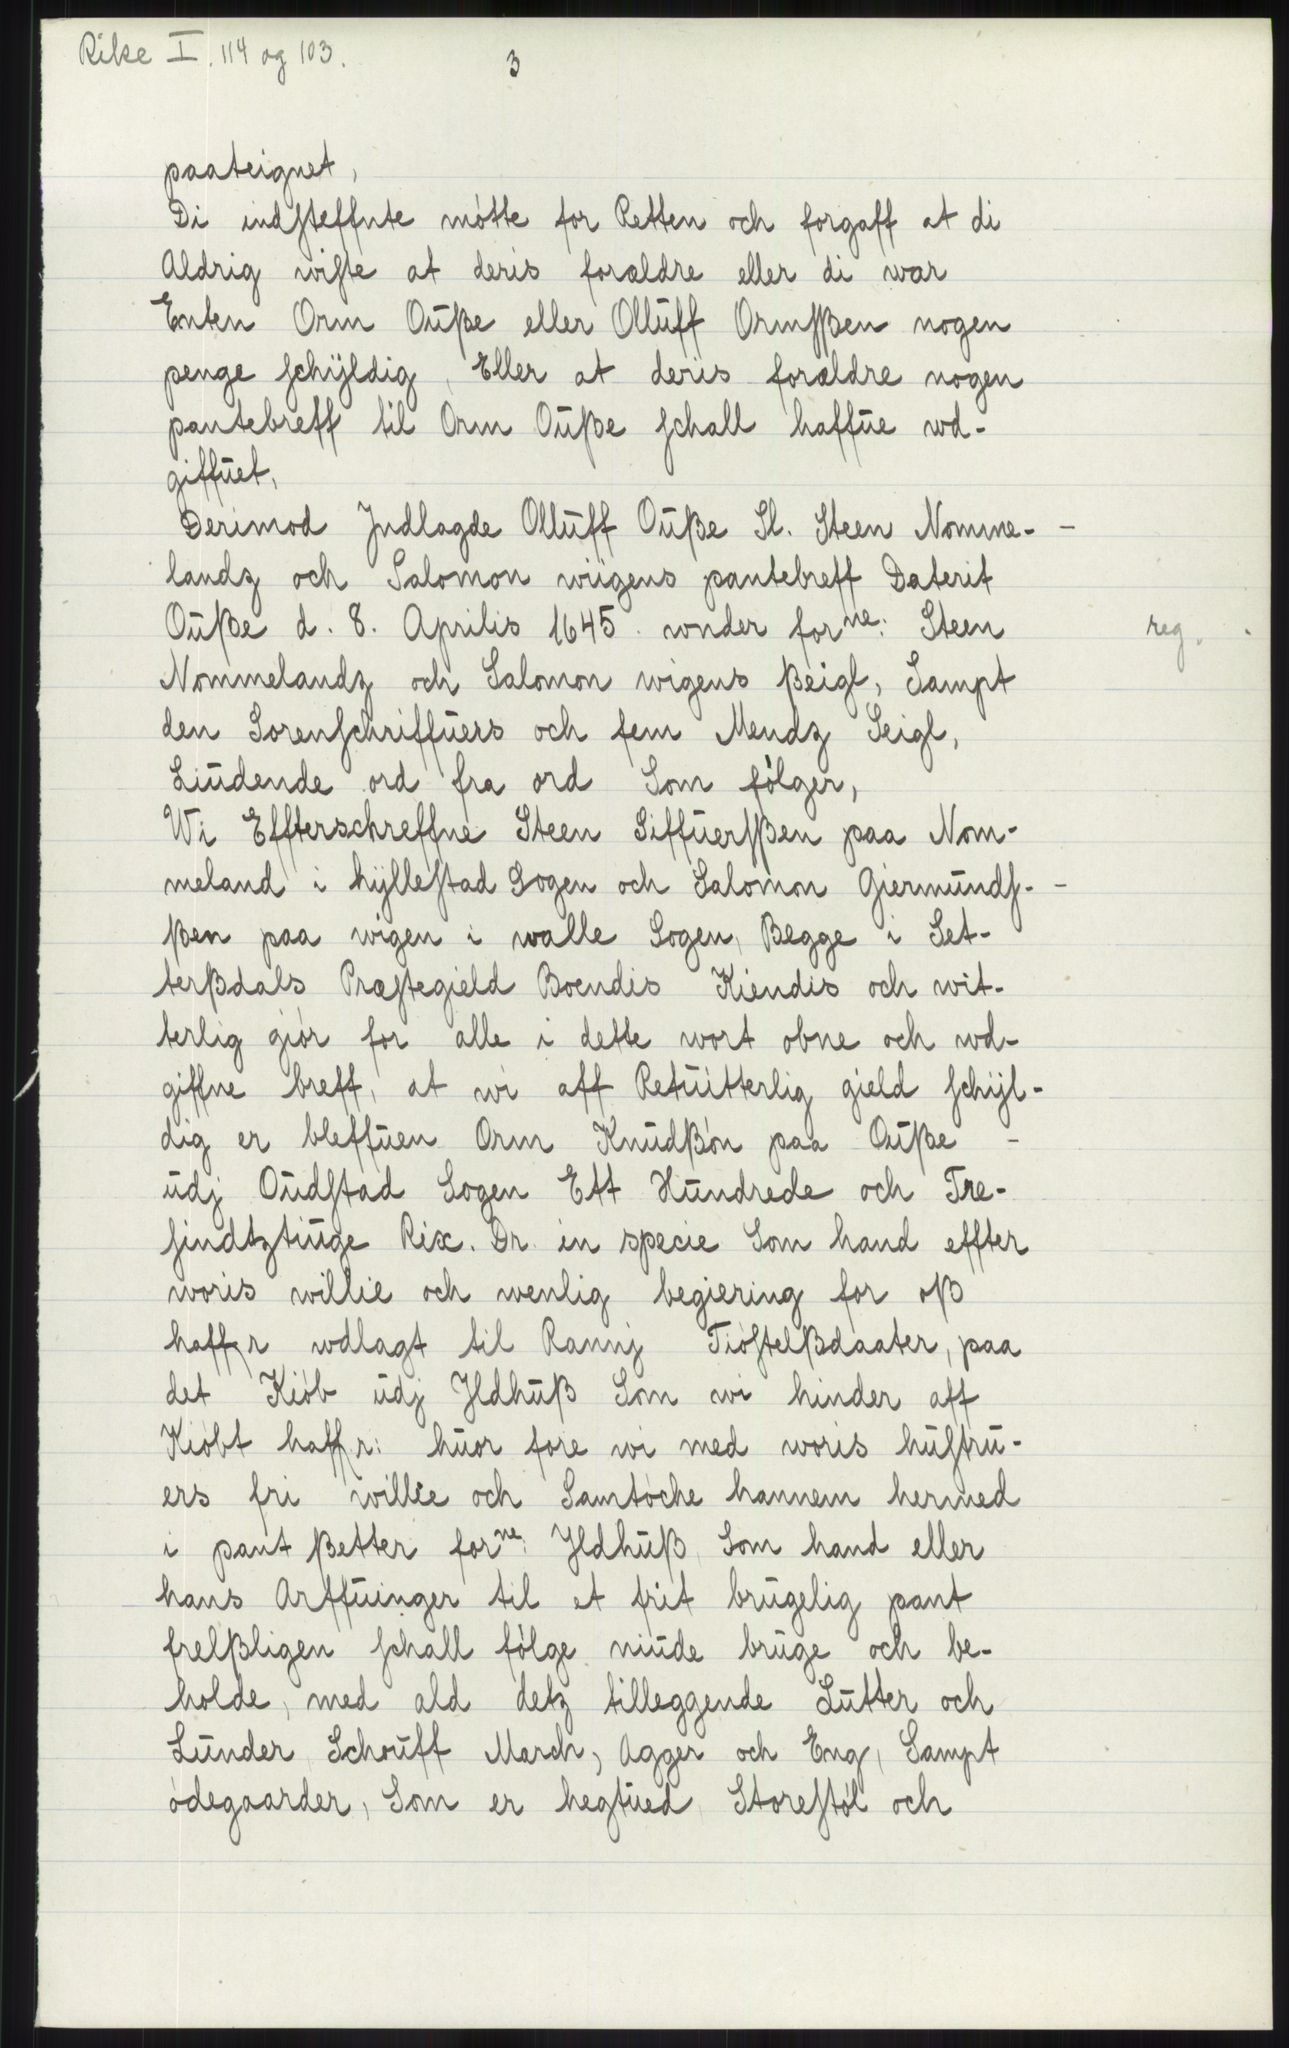 Rike I. 114 og 103.
3
paateignet,
Di indsteffnte møtte for Retten och forgaff at di
Aldrig wiste at deris forældre eller di war
Enten Orm Oüße eller Ollüff Ormsßen nogen
penge schÿldig, Eller at deris forældre nogen
pantebreff til Orm Oüße schall haffüe wd-
giffüet,
Derimod Jndlagde Ollüff Oüße Sl. Steen Nomme-
landz och Salomon wiigens pantebreff Daterit
Oüße d. 8. Aprilis 1645 wnder forne: Steen
reg.
Nommelandz och Salomon wigens ßeigl, Sampt
den Sorenschriffüers och fem Mendz Seigl,
Liüdende ord fra ord Som følger,
Wi Effterschreffne Steen Siffüersßen paa Nom-
meland i hÿllestad Sogen och Salomon Giermünds-
ßen paa wigen i walle Sogen, Begge i Set-
terßdals Præstegield Boendis Kiendis och wit-
terlig giør for alle i dette wort obne och wd-
giffne breff, at wi aff Retüitterlig gield schÿl-
dig er bleffüen Orm Knüdßøn paa Oüße
üdj Oüdstad Sogen Ett Hündrede och Tre-
sindtztiüge Rix. Dr. in specie Som hand effter
woris willie och wenlig begiering for oß
haffr wdlagt til Rannj Tiøstelßdaater, paa
det Kiøb üdj Jldhüß Som wi hinder aff
Kiøbt haffr: hüor fore wi med woris hüstrü-
ers fri willie och Samtøche hannem hermed
i pant ßetter forne: Jldhüß, Som hand eller
hans Arffüinger til et frit brügelig pant
frelßligen schall følge niüde brüge och be-
holde, med ald detz tilleggende Lutter och
Lünder, Schoüff March, Agger och Eng, Sampt
ødegaarder, Som er hegtüed, Storestøl och